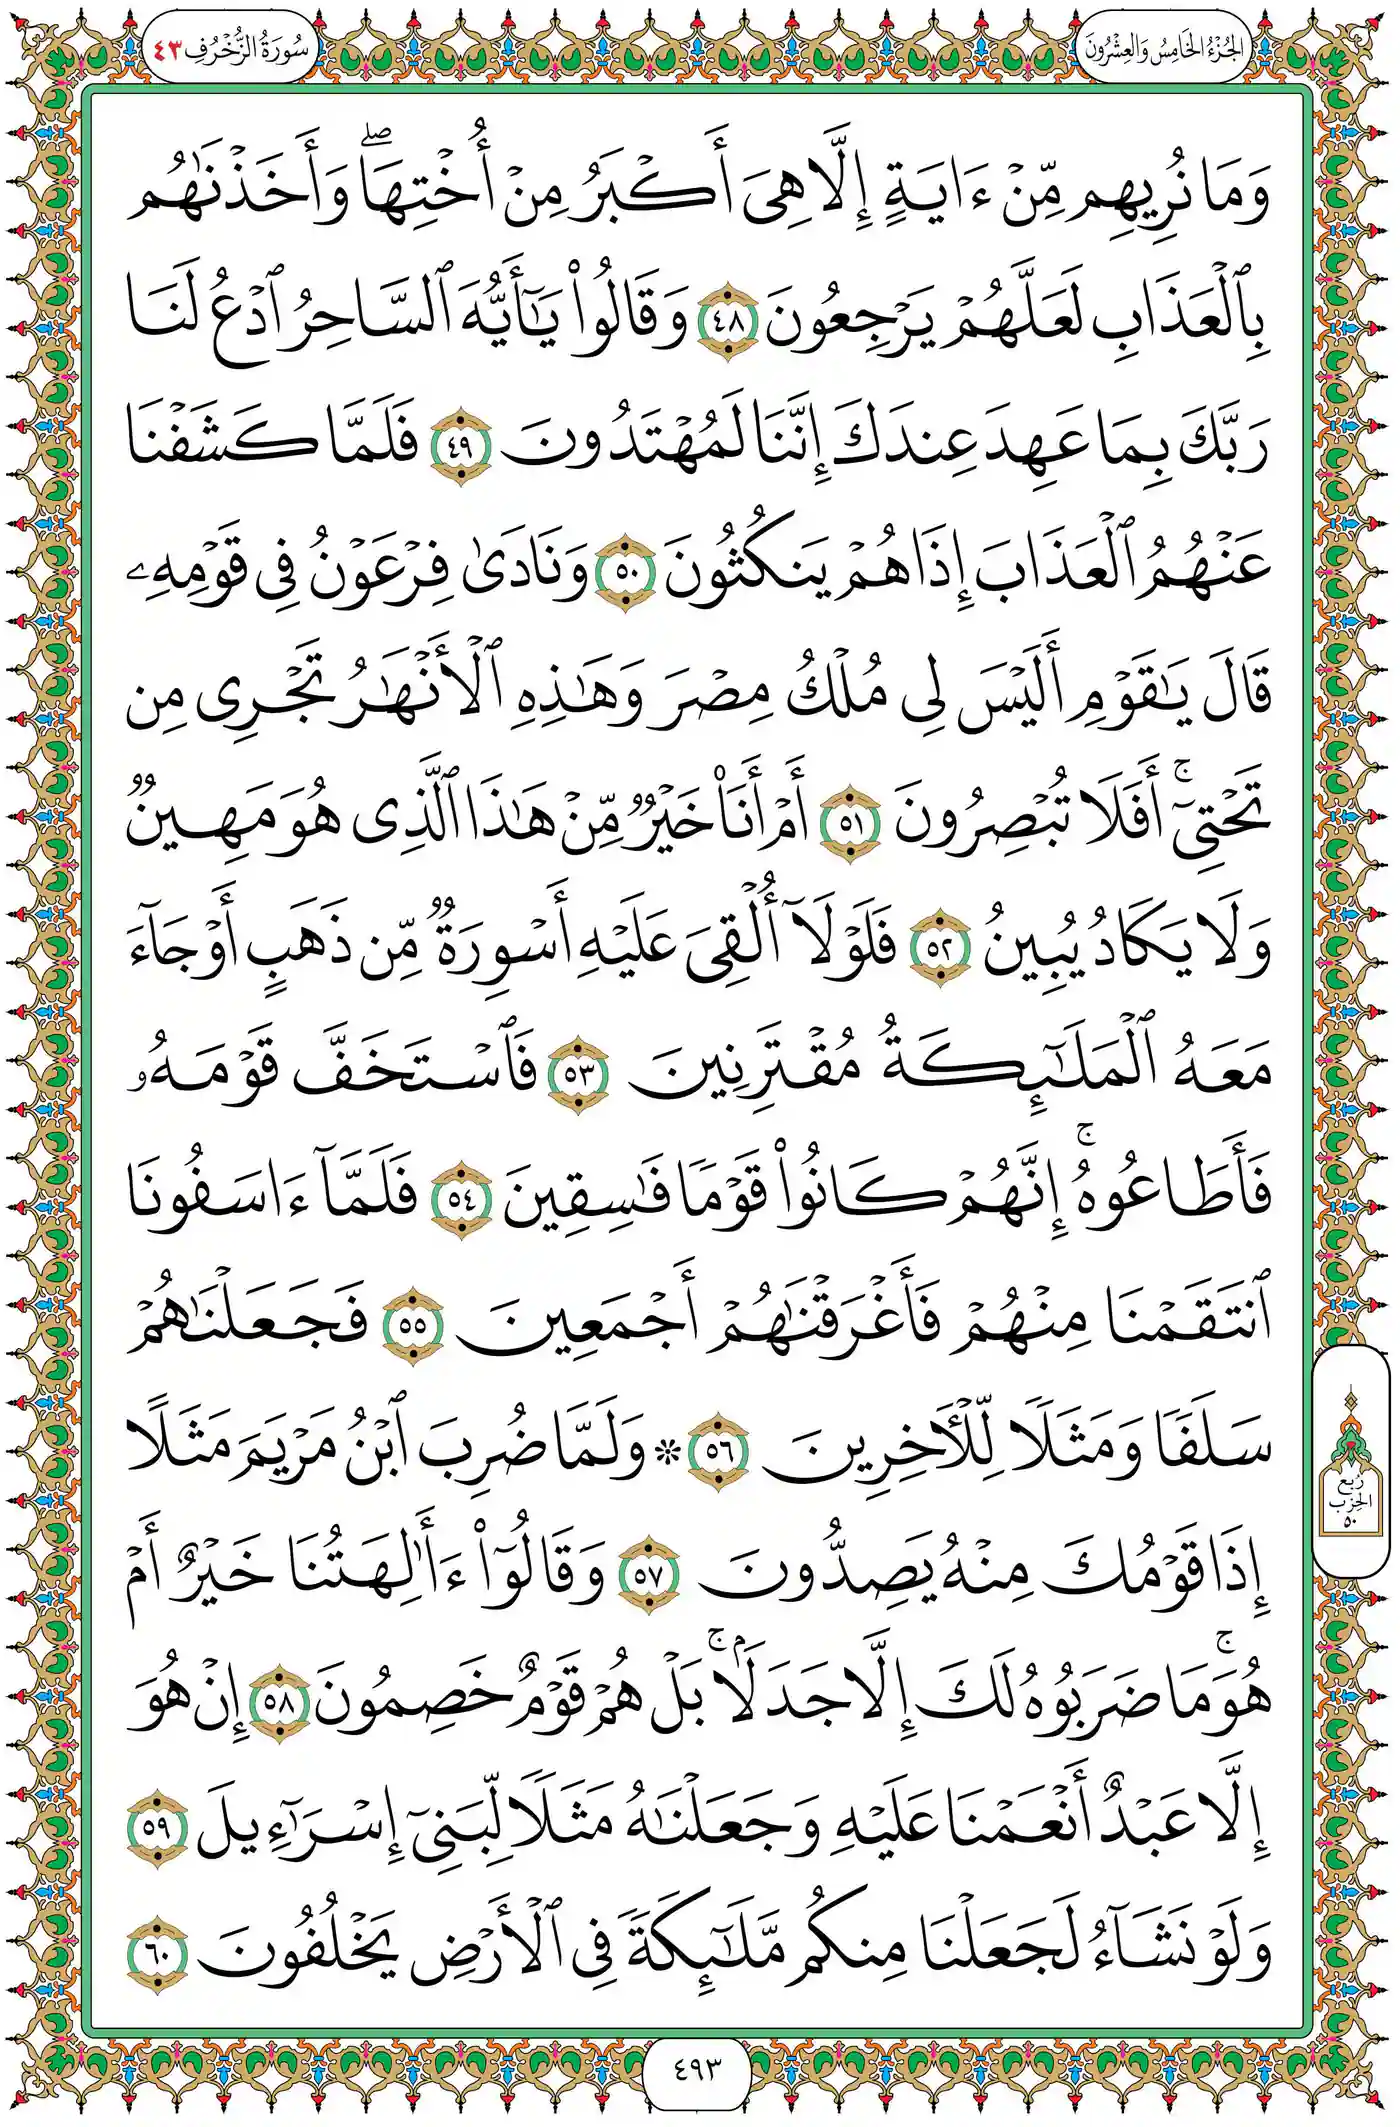 الجُزْءُ الخَامِسُ وَالعِشْرُونَ
سُورَةُ الزُّخْرُفِ ٤٣
وَمَا نُرِيهِم مِّنْ ءَايَةٍ إِلَّا هِىَ أَكْبَرُ مِنْ أُخْتِهَا ۖ وَأَخَذْنَٰهُم
بِٱلْعَذَابِ لَعَلَّهُمْ يَرْجِعُونَ ٤٨ وَقَالُوا۟ يَٰٓأَيُّهَ ٱلسَّاحِرُ ٱدْعُ لَنَا
رَبَّكَ بِمَا عَهِدَ عِندَكَ إِنَّنَا لَمُهْتَدُونَ ٤٩ فَلَمَّا كَشَفْنَا
عَنْهُمُ ٱلْعَذَابَ إِذَا هُمْ يَنكُثُونَ ٥٠ وَنَادَىٰ فِرْعَوْنُ فِى قَوْمِهِۦ
قَالَ يَٰقَوْمِ أَلَيْسَ لِى مُلْكُ مِصْرَ وَهَٰذِهِ ٱلْأَنْهَٰرُ تَجْرِى مِن
تَحْتِىٓ ۚ أَفَلَا تُبْصِرُونَ ٥١ أَمْ أَنَا۠ خَيْرٌ مِّنْ هَٰذَا ٱلَّذِى هُوَ مَهِينٌ
وَلَا يَكَادُ يُبِينُ ٥٢ فَلَوْلَآ أُلْقِىَ عَلَيْهِ أَسْوِرَةٌ مِّن ذَهَبٍ أَوْ جَآءَ
مَعَهُ ٱلْمَلَٰٓئِكَةُ مُقْتَرِنِينَ ٥٣ فَٱسْتَخَفَّ قَوْمَهُۥ
فَأَطَاعُوهُ ۚ إِنَّهُمْ كَانُوا۟ قَوْمًا فَٰسِقِينَ ٥٤ فَلَمَّآ ءَاسَفُونَا
ٱنتَقَمْنَا مِنْهُمْ فَأَغْرَقْنَٰهُمْ أَجْمَعِينَ ٥٥ فَجَعَلْنَٰهُمْ
سَلَفًا وَمَثَلًا لِّلْءَاخِرِينَ ٥٦ * وَلَمَّا ضُرِبَ ٱبْنُ مَرْيَمَ مَثَلًا
إِذَا قَوْمُكَ مِنْهُ يَصِدُّونَ ٥٧ وَقَالُوٓا۟ ءَأَٰلِهَتُنَا خَيْرٌ أَمْ
هُوَ ۚ مَا ضَرَبُوهُ لَكَ إِلَّا جَدَلًۢا ۚ بَلْ هُمْ قَوْمٌ خَصِمُونَ ٥٨ إِنْ هُوَ
إِلَّا عَبْدٌ أَنْعَمْنَا عَلَيْهِ وَجَعَلْنَٰهُ مَثَلًا لِّبَنِىٓ إِسْرَٰٓءِيلَ ٥٩
وَلَوْ نَشَآءُ لَجَعَلْنَا مِنكُم مَّلَٰٓئِكَةً فِى ٱلْأَرْضِ يَخْلُفُونَ ٦٠
رُبع
الحِزب
٥٠
٤٩٣